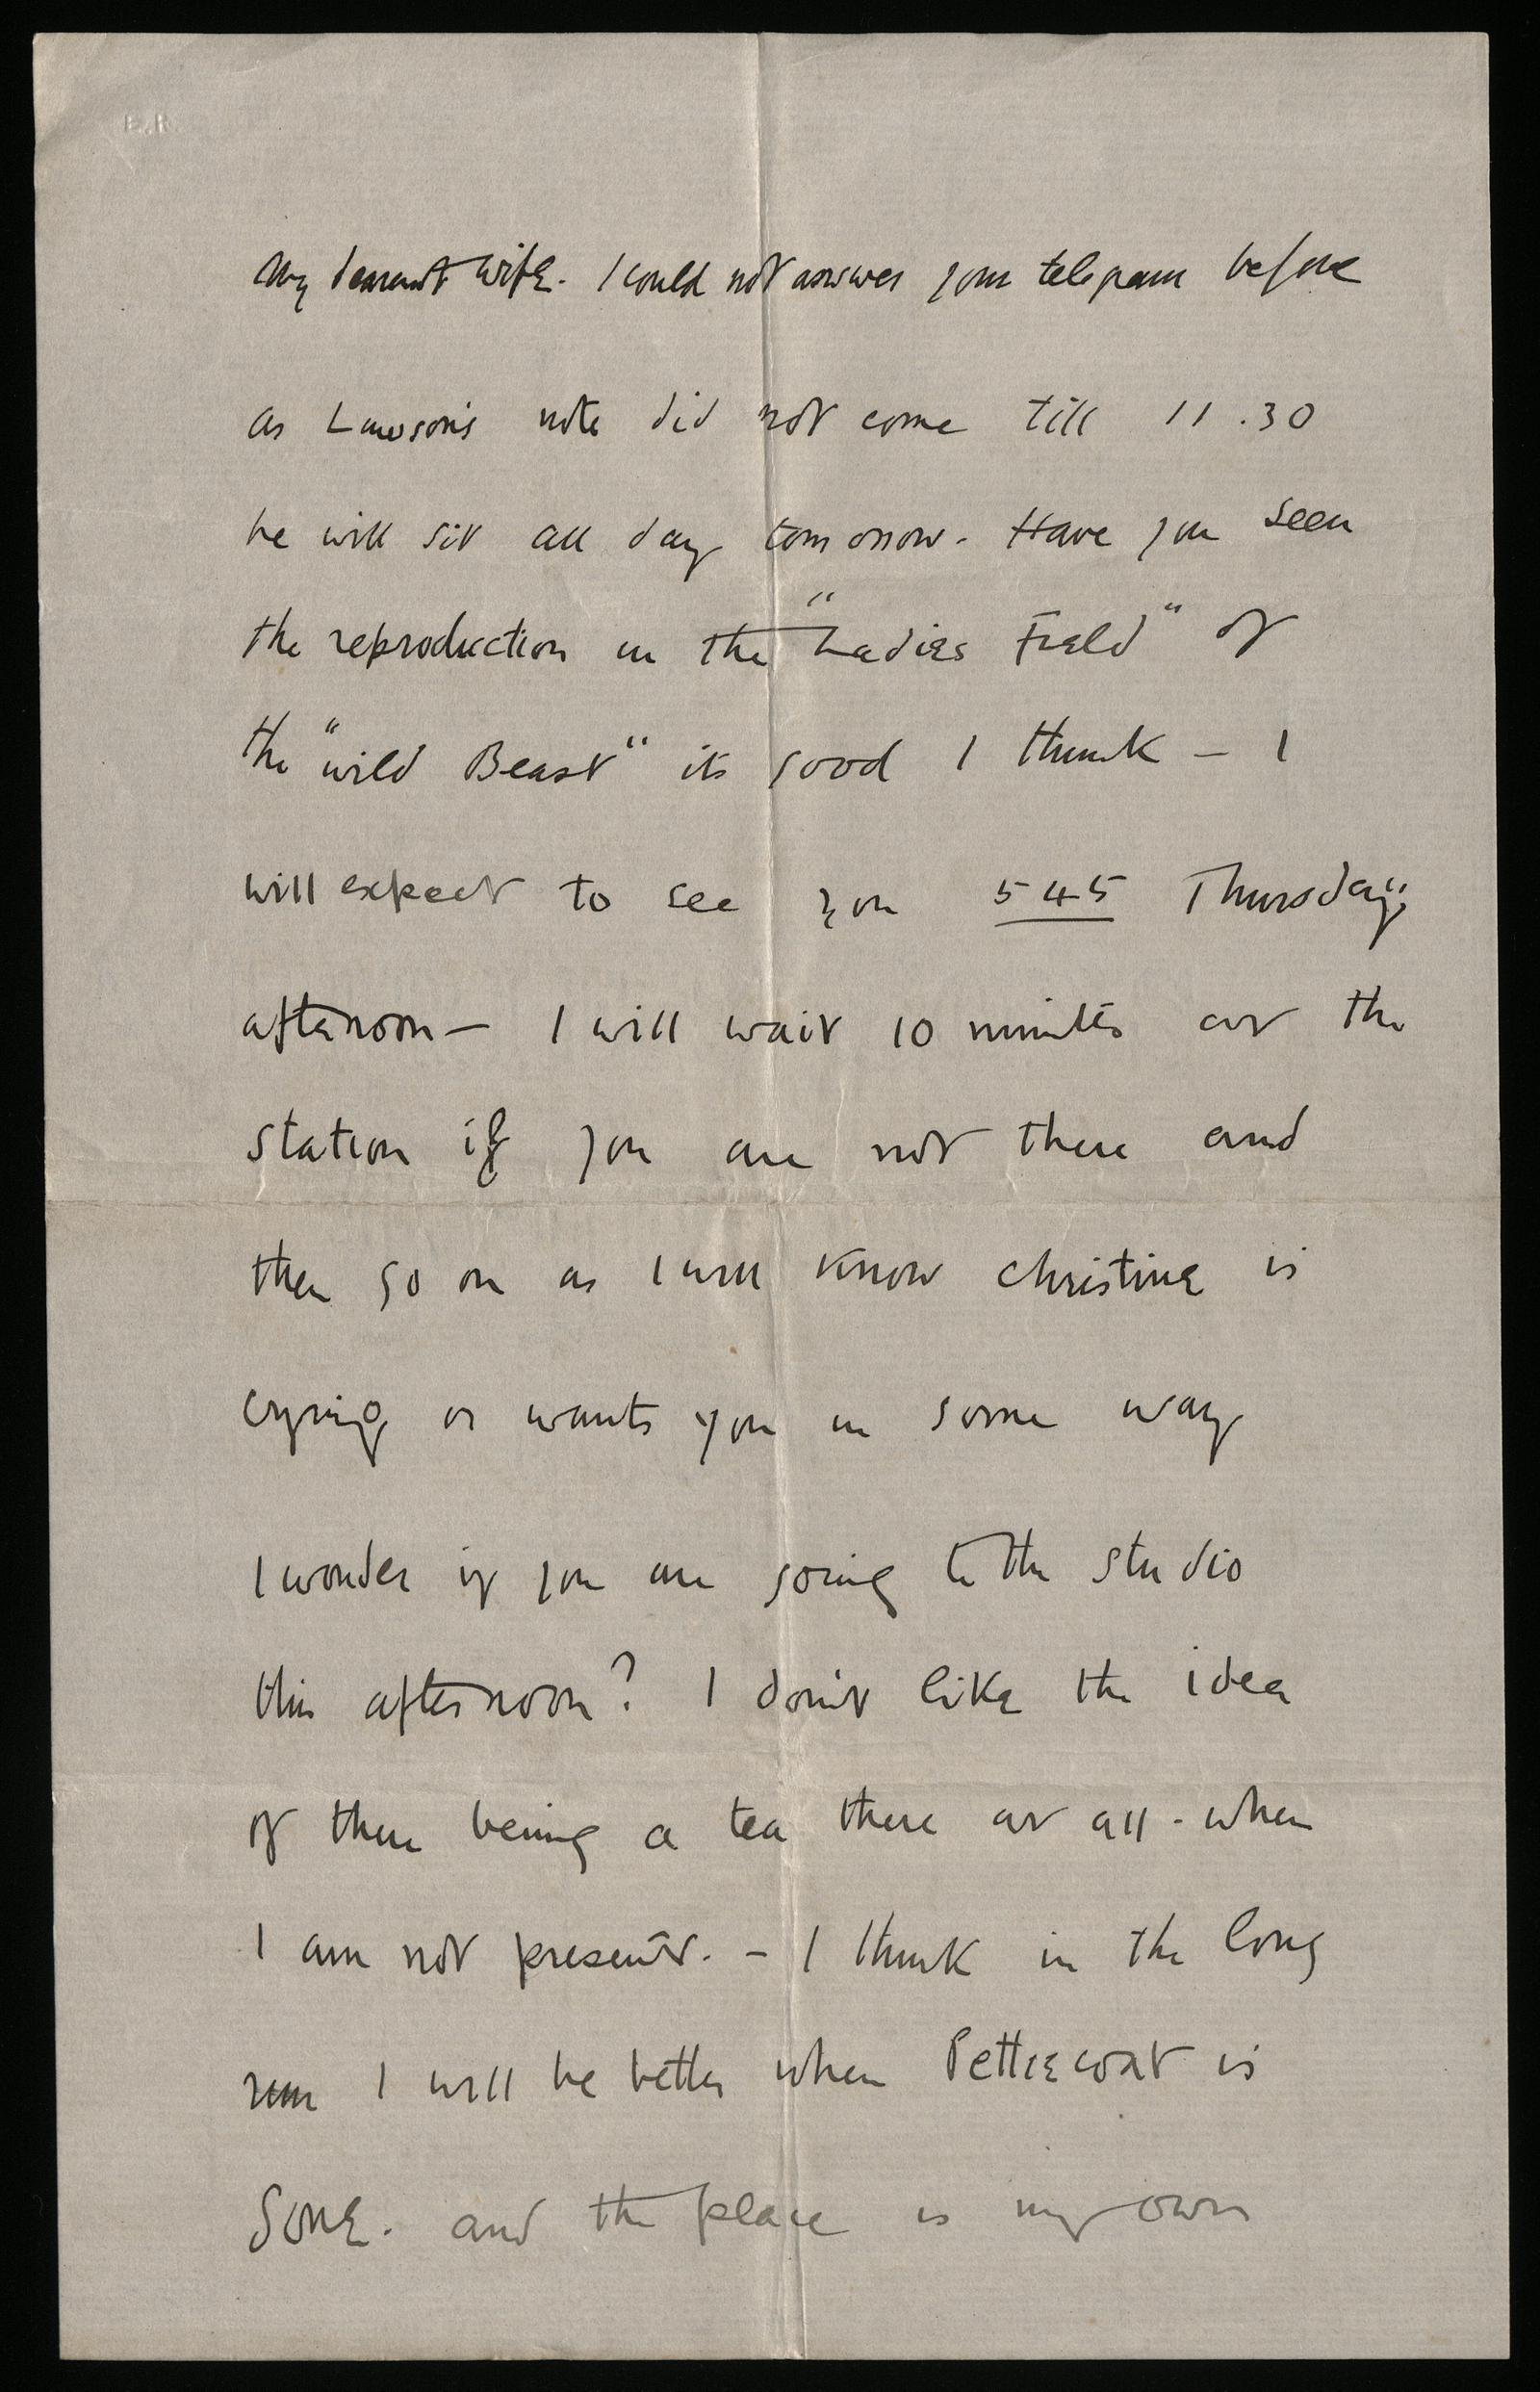 E.R.
My dearest wife. I could not answer your telegram before
as Lawson's note did not come till 11.30
he will sit all day tomorrow. Have you seen
the reproduction in the "Ladies Field" of
the "wild Beast" its good I think – I
will expect to see you 5 45 Thursday
afternoon – I will wait 10 minutes at the
station if you are not there and
then go on as I will know Christine is
crying or wants you in some way
I wonder if you are going to the studio
this afternoon? I don't like the idea
of there being a tea there at all - when
I am not present. – I think in the long
run I will be better when Pettiecoat is
gone. and the place is my own